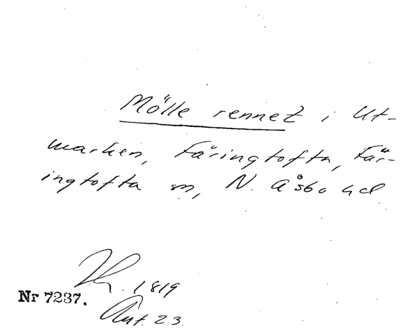 Mölle rennet i Ut-
marken, Färingtofta, Fär-
ingtofta sn, N. Åsbo hd
1819
Nr 7237.
Ant. 23